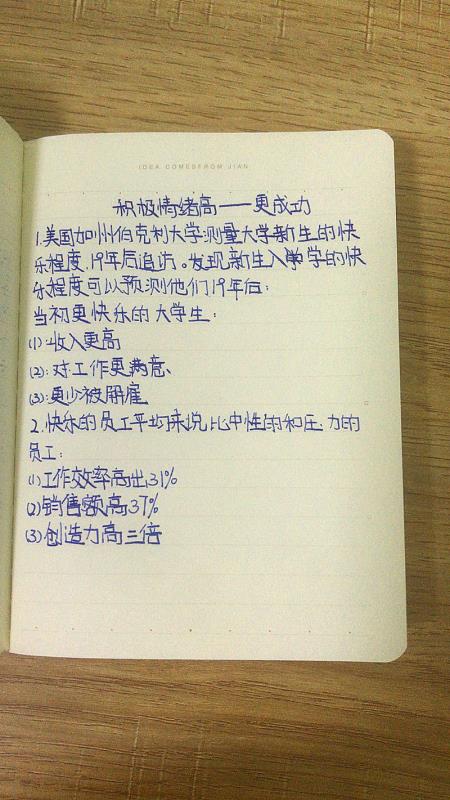 IDEA COMESFROM JIAN
积极情绪高——更成功
1.美国加州伯克利大学测量大学新生的快
乐程度,19年后追访。发现新生入学的快
乐程度可以预测他们19年后:
当初更快乐的大学生:
(1):收入更高
(2):对工作更满意、
(3):更少被解雇
2.快乐的员工平均来说比中性的和压力的
员工:
(1)工作效率高出31%
(2)销售额高37%
(3)创造力高三倍